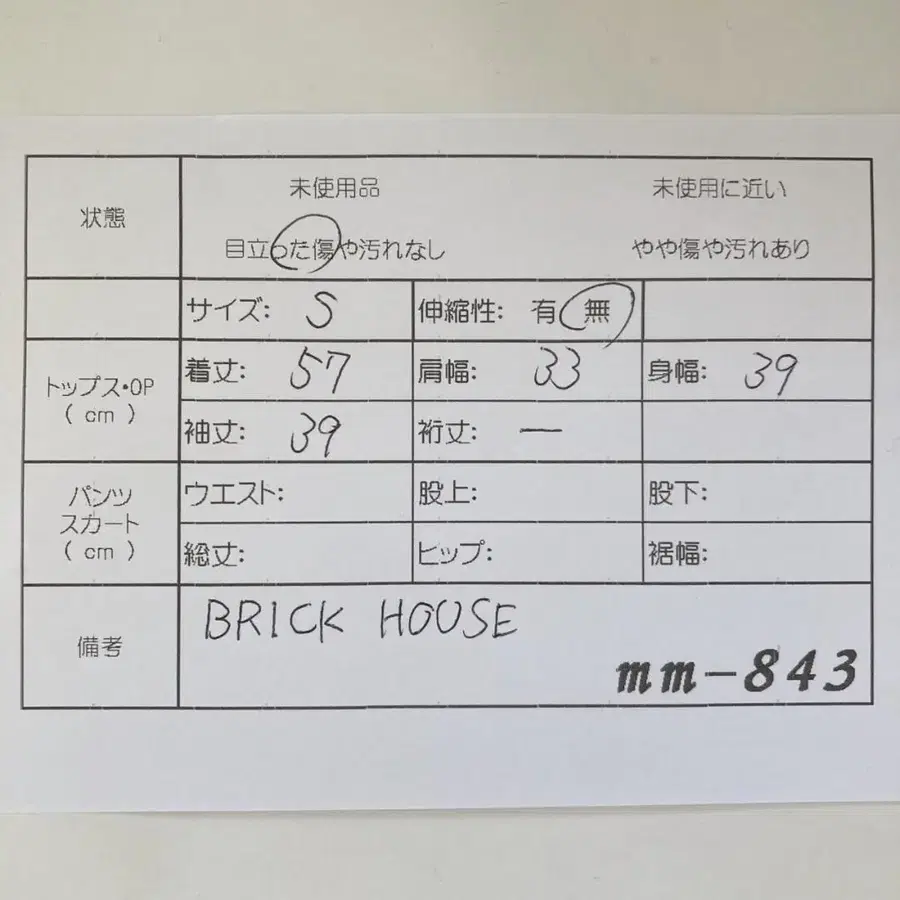 状態
未使用品 未使用に近い
目立った傷や汚れなし やや傷や汚れあり
サイズ: S 伸縮性: 有 無
トップス・OP
( cm )
着丈: 57 肩幅: 33 身幅: 39
袖丈: 39 裄丈: ー
パンツ
スカート
( cm )
ウエスト: 股上: 股下:
総丈: ヒップ: 裾幅:
備考
BRICK HOUSE
mm-843